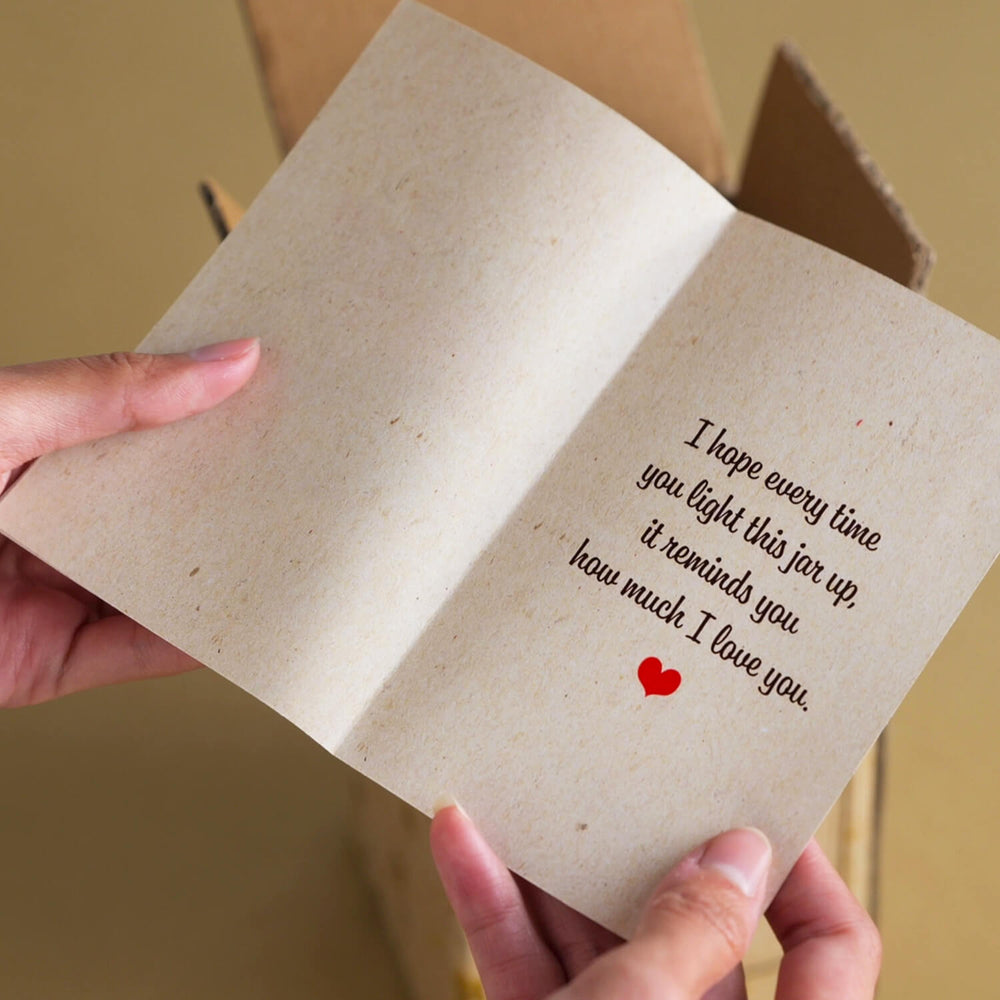 I hope every time
you light this jar up,
it reminds you
how much I love you.